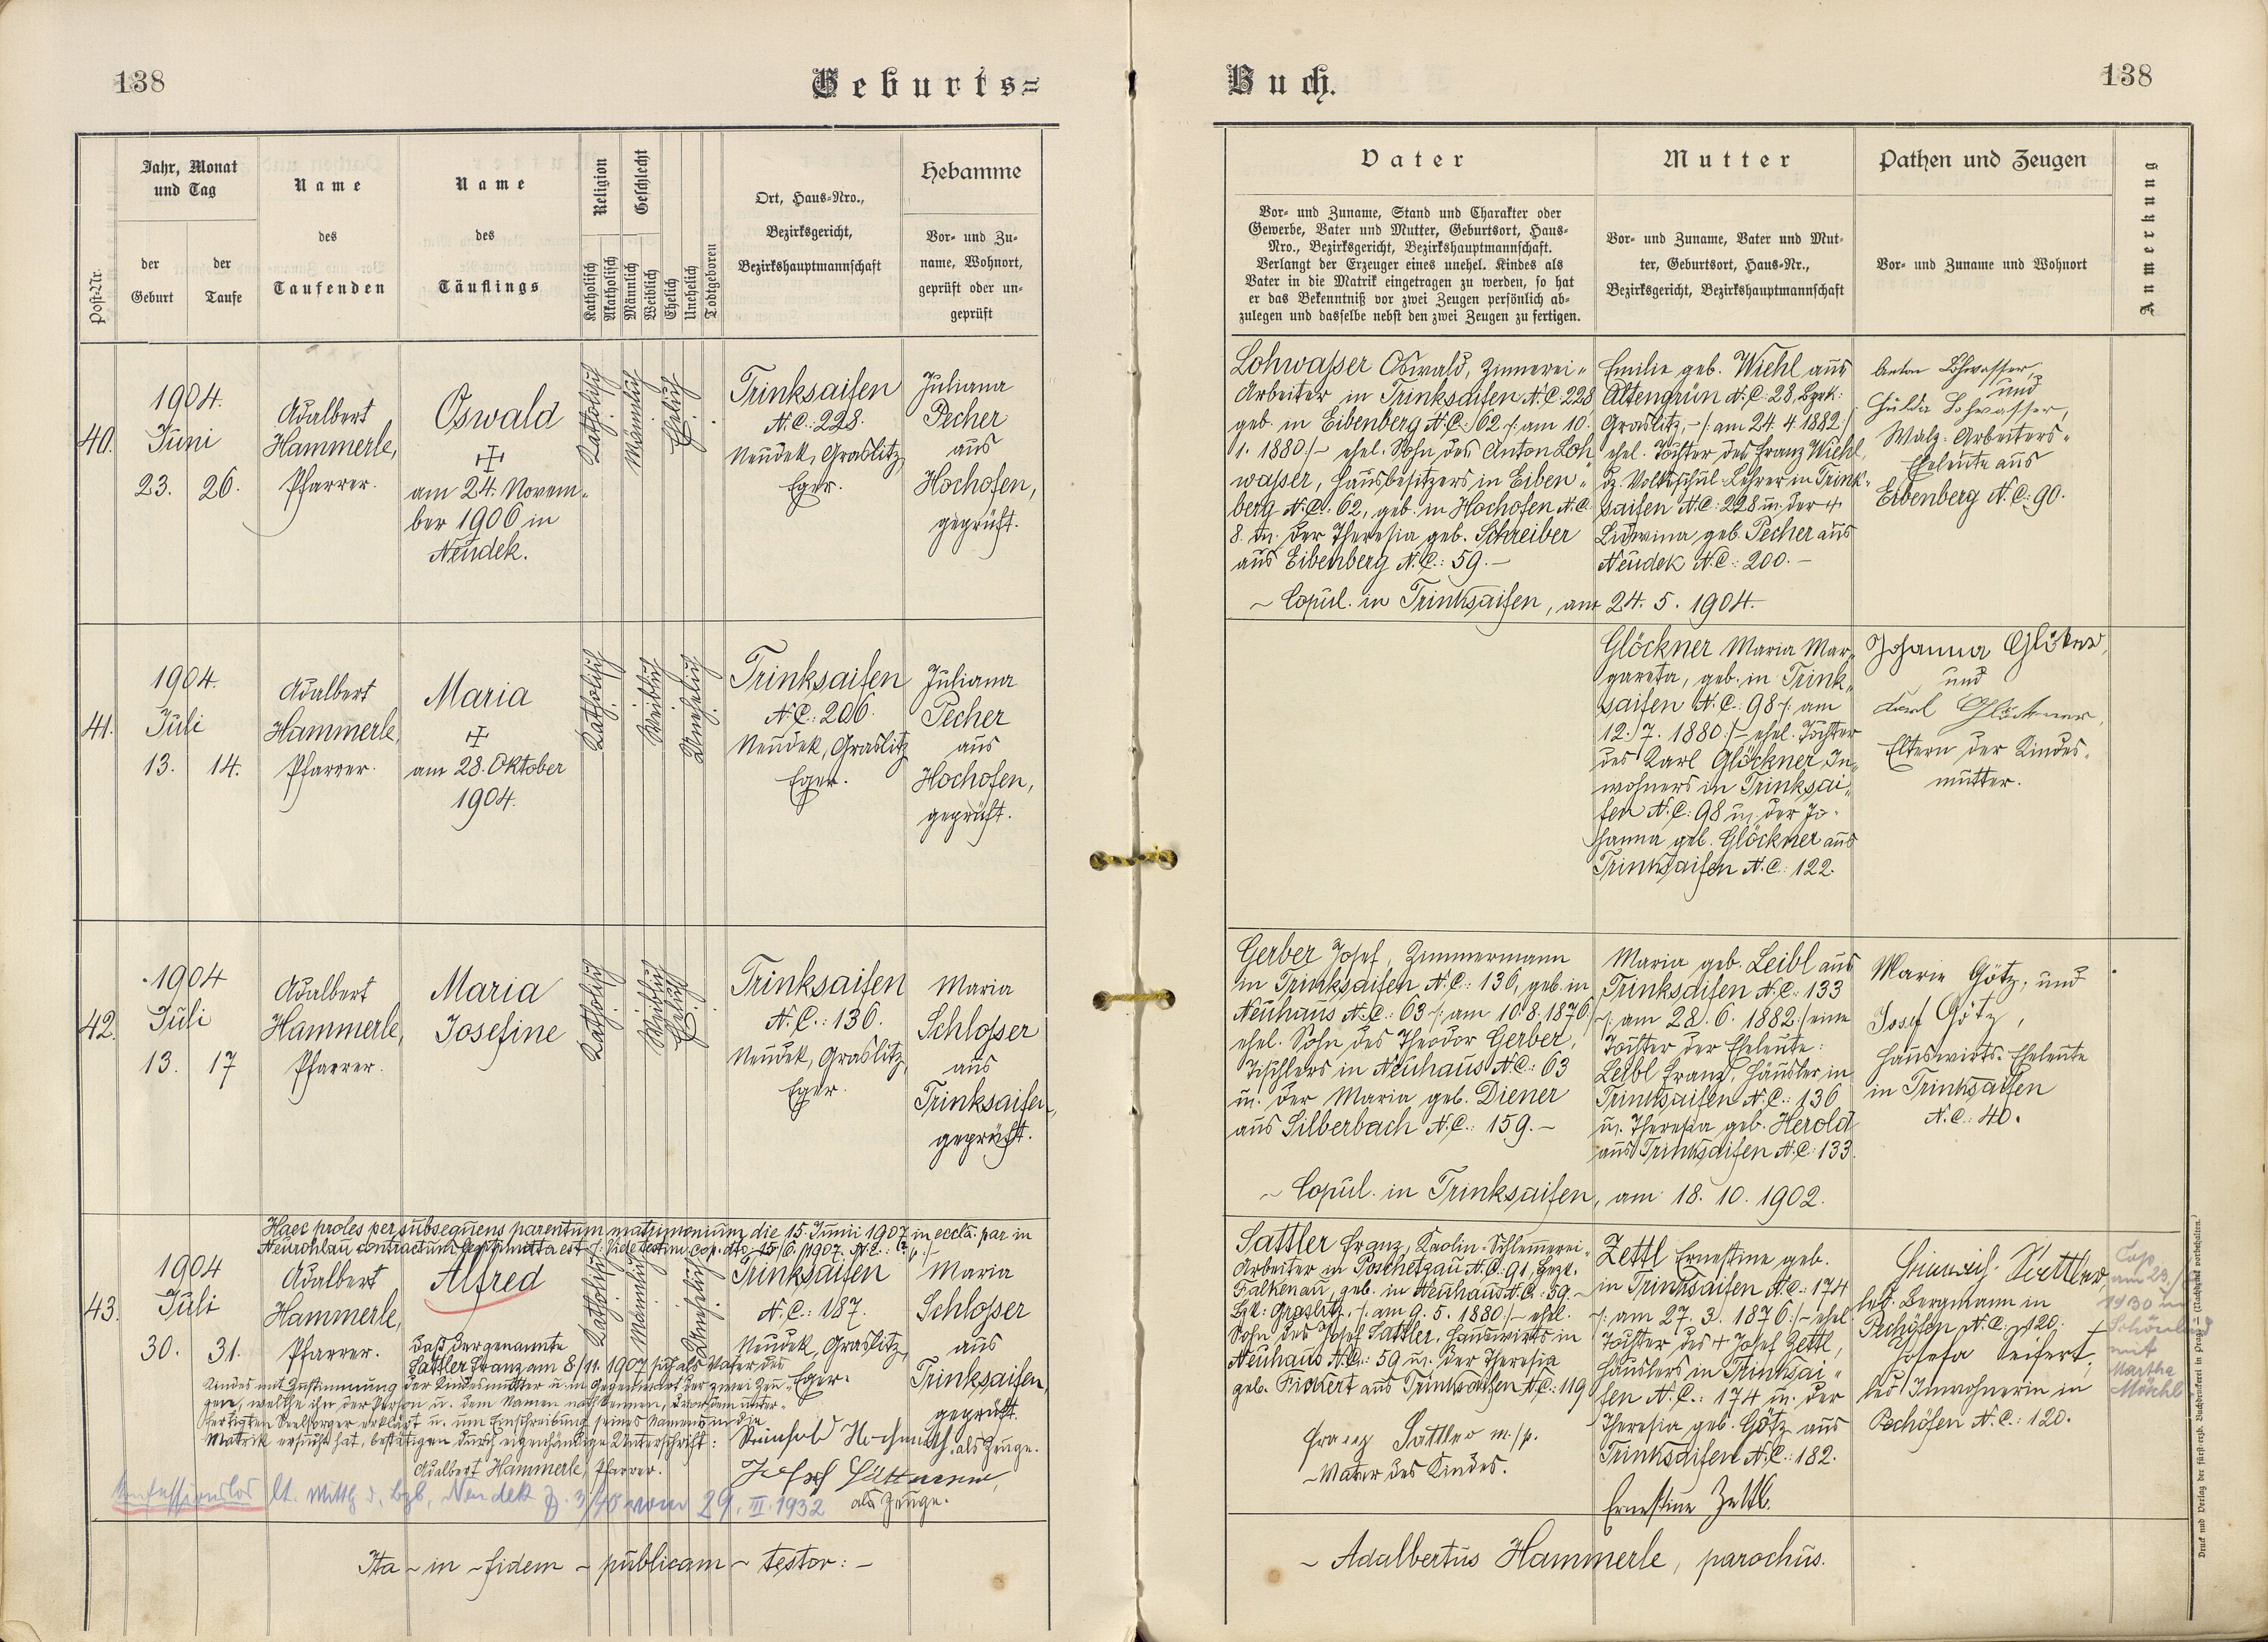 138
Geburts=
Jahr, Monat
und Tag
der
Geburt
der
Taufe
Post-Nr.
Name
des
Taufenden
Name
des
Täuflings
Religion
Geschlecht
Katholisch
Akatholisch
Männlich
Weiblich
Ehelich
Unehelich
Todtgeboren
Ort, Haus-Nro.,
Bezirksgericht,
Bezirkshauptmannschaft
Hebamme
Vor- und Zu-
name, Wohnort,
geprüft oder un-
geprüft
40.
1904.
Juni
23. 26.
Adalbert
Hammerle,
Pfarrer.
Oswald
am 24. Novem-
ber 1906 in
Neudek.
Katholisch
Männlich
Ehelich
Trinksaifen
N.C.: 228.
Neudek, Graslitz,
Eger.
Juliana
Pecher
aus
Hochofen,
geprüft.
41.
1904.
Juli
13. 14.
Adalbert
Hammerle,
Pfarrer.
Maria
am 28. Oktober
1904.
Katholisch
Weiblich
Unehelich
Trinksaifen
N.C.: 206.
Neudek, Graslitz
Eger.
Juliana
Pecher
aus
Hochofen,
geprüft.
42.
1904
Juli
13. 17
Adalbert
Hammerle,
Pfarrer.
Maria
Josefine
Katholisch
Weiblich
Ehelich
Trinksaifen
N.C.: 136.
Neudek, Graslitz,
Eger.
Maria
Schlosser
aus
Trinksaifen,
geprüft.
Haec proles per subsequens parentum matrimonium die 15. Junii 1907 in eccla. par in
Neurohlau contractum legitimata est
43.
1904
Juli
30. 31.
Adalbert
Hammerle,
Pfarrer.
Alfred
Katholisch
Männlich
Unehelich
Trinksaifen
N.C.: 187.
Neudek, Graslitz,
Eger.
Maria
Schlosser
aus
Trinksaifen,
geprüft.
Daß der genannte
Sattler Franz am 8/11. 1907 sich als Vater des
Kindes mit Zustimmung der Kindesmutter u. in Gegenwart der zwei Zeu-
gen, welche ihn der Person u. dem Namen nach kennen, vor dem unter-
fertigten Seelsorger erklärt u. um Einschreibung seines Namens in die
Matrik ersucht hat, bestätigen durch eigenhändige Unterschrift:
Adalbert Hammerle, Pfarrer.
Reinhold Hochmuth als Zeuge.
als Zeuge.
Konfessionslos lt. Mittlg d. Bzb. Neudek Z. 3/40 vom 29. III. 1932
Ita in fidem publicam testor:
Buch.
138
Vater
Vor- und Zuname, Stand und Charakter oder
Gewerbe, Vater und Mutter, Geburtsort, Haus-
Nro., Bezirksgericht, Bezirkshauptmannschaft.
Verlangt der Erzeuger eines unehel. Kindes als
Vater in die Matrik eingetragen zu werden, so hat
er das Bekenntniß vor zwei Zeugen persönlich ab-
zulegen und dasselbe nebst den zwei Zeugen zu fertigen.
Mutter
Vor- und Zuname, Vater und Mut-
ter, Geburtsort, Haus-Nr.,
Bezirksgericht, Bezirkshauptmannschaft
Pathen und Zeugen
Vor- und Zuname und Wohnort
Anmerkung
Lohwasser Oswald, Zimmerei-
Arbeiter in Trinksaifen N.C: 228
geb. in Eibenberg N.C.: 62 /: am 10.
1. 1880 :/ ehel. Sohn des Anton Loh
wasser, Hausbesitzers in Eiben-
berg N.C.: 62, geb. in Hochofen N.C.
8. u. der Theresia geb. Schreiber
aus Eibenberg N.C.: 59.
Copul. in Trinksaifen, am 24. 5. 1904.
Emilie geb. Wiehl aus
Altengrün N.C.: 28, Bzrk:
Graslitz, /: am 24. 4. 1882 :/
ehel. Tochter des Franz Wiehl,
dz. Volksschul-Lehrer in Trink-
saifen N.C.: 228 u. der +
Ludwina geb. Pecher aus
Neudek N.C.: 200.
Anton Lohwasser,
und
Hulda Lohwasser,
Walz-Arbeiters-
Eheleute aus
Eibenberg N.C.: 90.
Glöckner Maria Mar-
gareta, geb. in Trink-
saifen N.C.: 98 /: am
12./7. 1880 :/ ehel. Tochter
des Karl Glöckner, In-
wohners in Trinksai-
fen N.C.: 98 u. der Jo-
hanna geb. Glöckner aus
Trinksaifen N.C.: 122.
Johanna Glökner,
und
Karl Glöckner,
Eltern der Kindes-
mutter.
Gerber Josef, Zimmermann
in Trinksaifen N.C.: 136, geb. in
Neuhaus N.C.: 63 /: am 10. 8. 1876 :/
ehel. Sohn des Theodor Gerber,
Tischlers in Neuhaus N.C.: 63
u. der Maria geb. Diener
aus Silberbach N.C.: 159.
Copul. in Trinksaifen, am 18. 10. 1902.
Maria geb. Leibl aus
Trinksaifen N.C.: 133
/: am 28. 6. 1882 :/ eine
Tochter der Eheleute:
Leibl Franz, Häusler in
Trinksaifen N.C.: 136
u. Theresia geb. Herold
aus Trinksaifen N.C.: 133.
Marie Götz, und
Josef Götz,
Hauswirts-Eheleute
in Trinksaifen
N.C.: 40.
Sattler Franz, Kaolin-Schlemmerei-
Arbeiter in Poschetzau N.C.: 91, Bezk.
Falkenau, geb. in Neuhaus N.C.: 59.
Bzk: Graslitz, /: am 9. 5. 1880 :/ ehel.
Sohn des Josef Sattler, Hauswirts in
Neuhaus N.C.: 59 u. der Theresia
geb. Fickert aus Trinksaifen N.C.: 119
Franz Sattler m./p.
Vater des Kindes.
Zettl Ernestine geb.
in Trinksaifen N.C.: 174
/: am 27. 3. 1876 :/ ehel
Tochter des + Josef Zettl,
Häuslers in Trinksai-
fen N.C.: 174 u. der
Theresia geb. Götz aus
Trinksaifen N.C.: 182.
Ernestine Zettl.
Heinrich Sattler,
led. Bergmann in
Pechöfen N.C.: 120.
Josefa Seifert,
led. Inwohnerin in
Pechöfen N.C.: 120.
Cop.
am 23./
1930 in
mit
Martha
Adalbertus Hammerle, parochus.
Druck und Verlag der fürst-erzb. Buchdruckerei in Prag. (Nachdruck vorbehalten.)